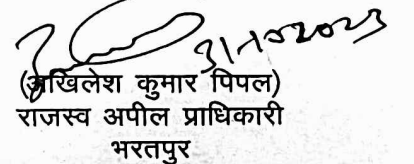 31-10-2023
(अखिलेश कुमार पिपल)
राजस्व अपील प्राधिकारी
भरतपुर